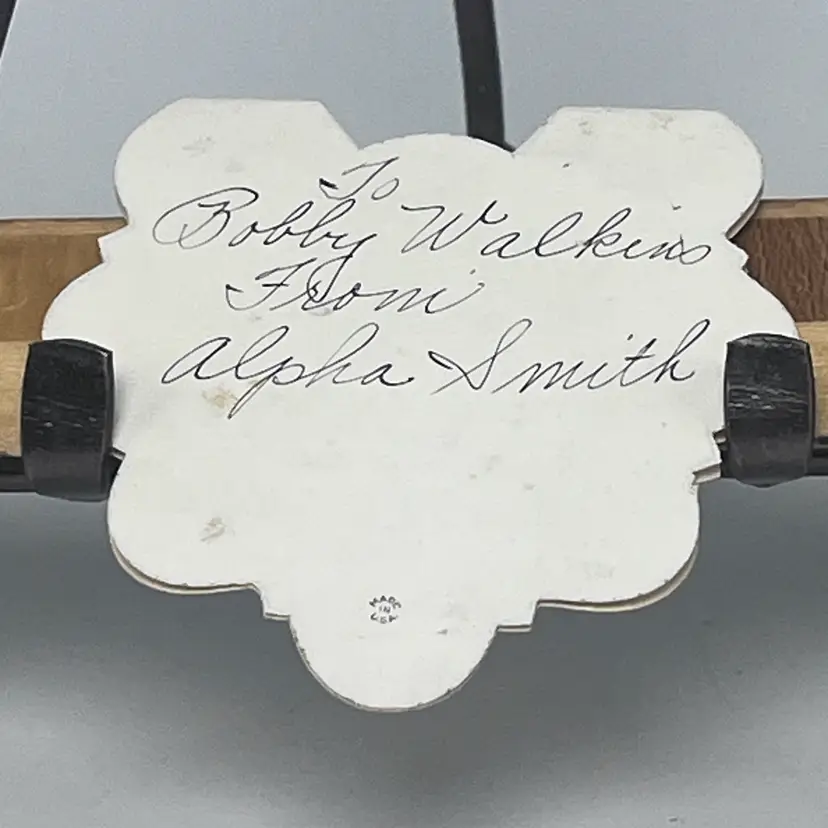 To
Bobby Walkins
From
Alpha Smith
MADE
IN
USA